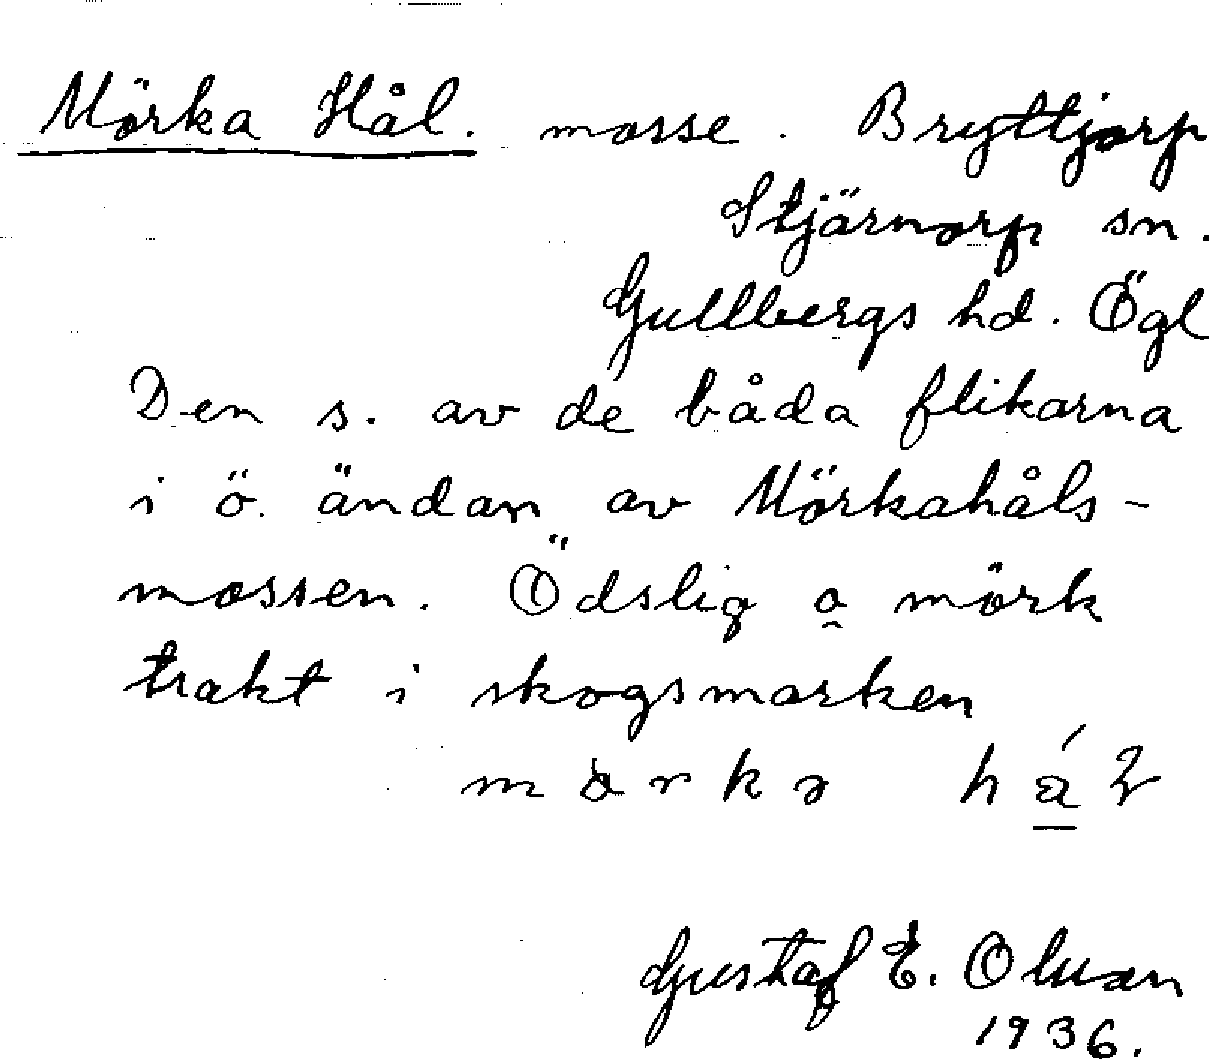 Mörka Hål. mosse. Bryttjorp
Stjärnorp sn.
Gullbergs hd. Ögl
Den s. av de båda flikarna
i ö. ändan av Mörkahåls-
mossen. Ödslig o mörk
trakt i skogsmarken
Gustaf E. Olsson
1936.